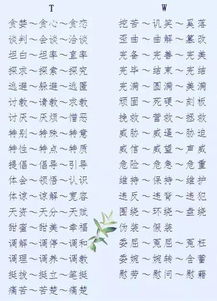 T
贪婪～贪心～贪恋
谈判～会谈～洽谈
坦白～坦率～直率
探求～探索～探究
逃避～躲避～逃匿
讨教～请教～求教
讨厌～厌烦～憎恶
特别～特殊～特意
特性～特点～特质
提倡～倡导～引导
体会～领悟～认识
体谅～谅解～宽容
天资～天分～天赋
甜蜜～甜美～幸福
调解～调停～调和
调理～调养～调教
挺拔～挺立～笔挺
痛苦～苦楚～痛楚
W
挖苦～讥笑～奚落
歪曲～曲解～篡改
完备～完善～完美
完毕～结束～完结
完满～圆满～美满
顽固～死硬～刻板
挽救～营救～拯救
威胁～威逼～胁迫
威信～威望～声威
危险～危急～危重
维持～保持～维护
违反～违背～违犯
围绕～环绕～盘绕
伪装～假装
委屈～冤屈～冤枉
委婉～婉转～含蓄
慰劳～慰问～慰藉